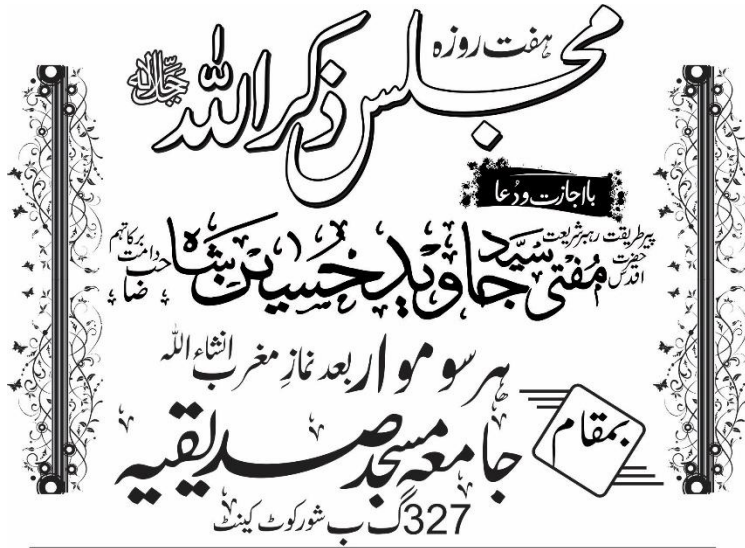 ہفت روزہ
مجلس ذکر اللہ جل جلالہ
بااجازت و دُعا
پیر طریقت رہبر شریعت
حضرت اقدس مُفتی سیّد جاوید حُسین شاہ صاحب دامت برکاتہم
ہر سوموار بعد نمازِ مغرب انشاء اللہ
بمقام
جامعہ مسجد صدیقیہ
327 گ ب شور کوٹ کینٹ